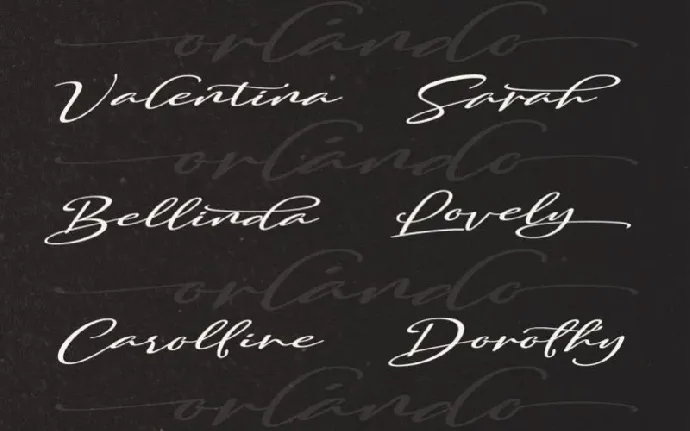 orlando
Valentina Sarah
orlando
Bellinda Lovely
orlando
Carolline Dorothy
orlando